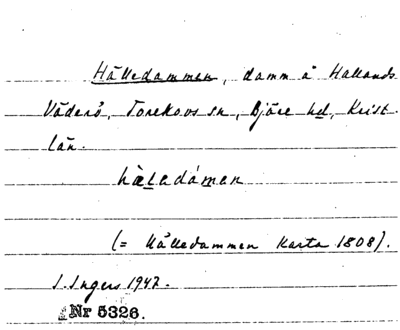 Hålledammen, damm å Hallands
Väderö, Torekovs sn, Bjäre hd, Krist.
län.
hàlədámən
(= Kålledammen Karta 1808).
I. Ingers 1947.
Nr 5326.